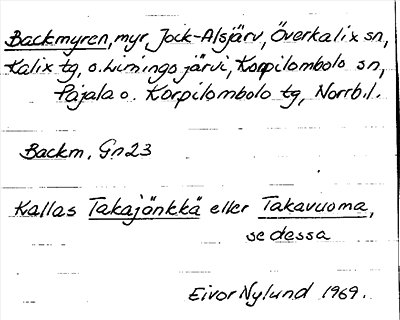 Backmyren, myr, Jock-Alsjärv, Överkalix sn,
Kalix tg, o. Liningojärvi, Korpilombolo sn,
Pajala o. Korpilombolo tg, Norrb.l.
Backm, Gn23
Kallas Takajänkkä eller Takavuoma,
se dessa
Eivor Nylund 1969.